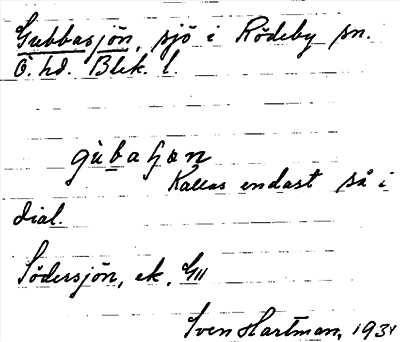 Gubbasjön, sjö i Rödeby sn.
Ö. hd. Blek. l.
gùbaɧœn
Kallas endast så i
dial.
Södersjön, ek.
Sven Hartman, 193